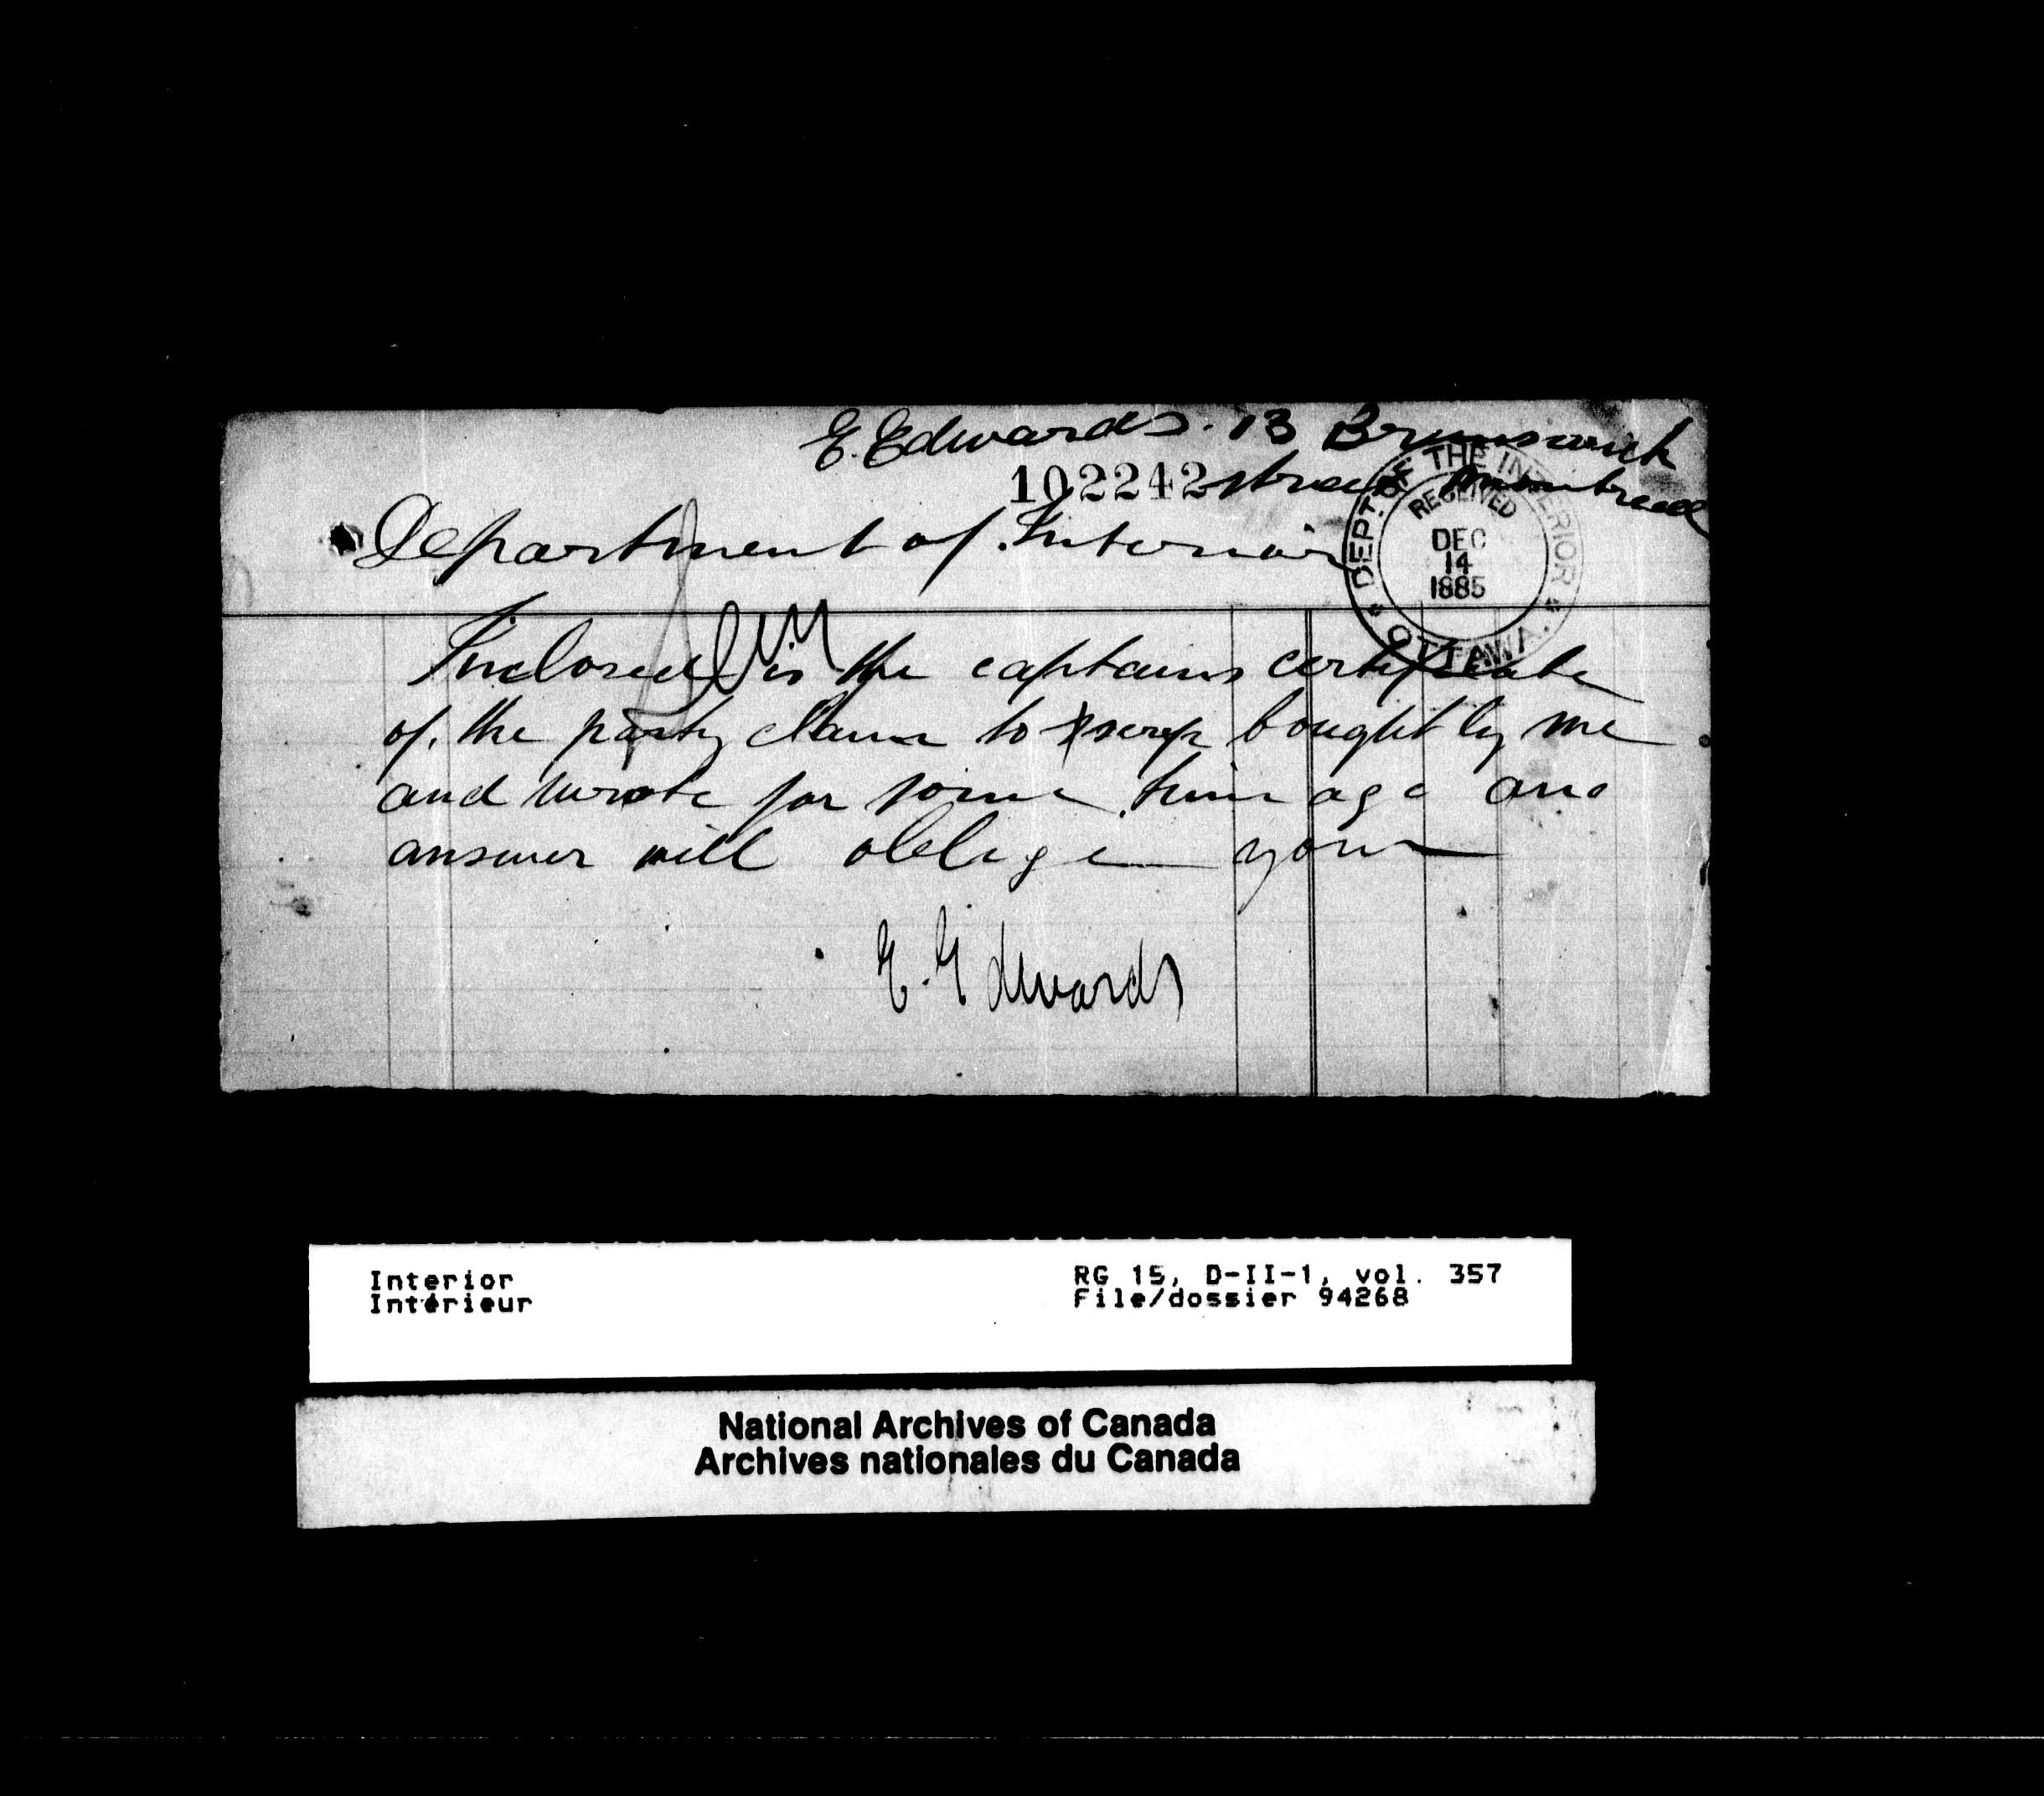 E. Edwards. 13 Brunswick
102242 street Montreal
Department of Interior
DEPT. OF THE INTERIOR
RECEIVED
DEC
14
1885
OTTAWA.
Inclosed is the captains certificate
of the party claim to scrip bought by me
and wrote for some time ago and
answer will oblige yours
E. Edwards
Interior
Intérieur
RG 15, D-II-1, vol. 357
File/dossier 94268
National Archives of Canada
Archives nationales du Canada